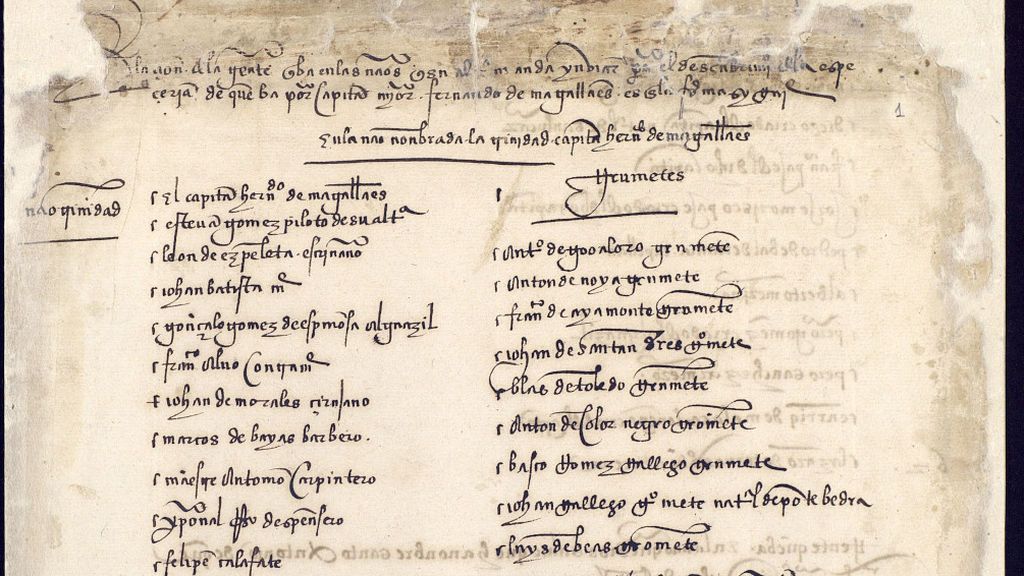 Relaçion de la gente que ba en las naos que su al manda ynbiar para el descubrimiento de la espe
ceria de que ba por Capitan mayor fernando de magallaẽs
1
En la nao nonbrada la trinidad capitan hernº de magallaẽs
nao trinidad
El capitan hernᵈº de magallaẽs
estevã gomez piloto de su altª
leon de ezpeleta escrivano
iohan batista mº
gonçalo gomez de espinosa alguazil
franº Alvo Contramº
iohan de morales çirujano
marcos de bayas barbero.
maestre Antonio Carpintero
xpoval despensero
felipe calafate
Grumetes
Antº de goa loro grumete
Anton de noya grumete
franº de ayamonte grumete
iohan de santandres grumete
blas de toledo grumete
Anton de Color negro gromete
basco Gomez gallego grumete
iohan gallego grumete natᵘl de pontebedra
luys de beas gromete